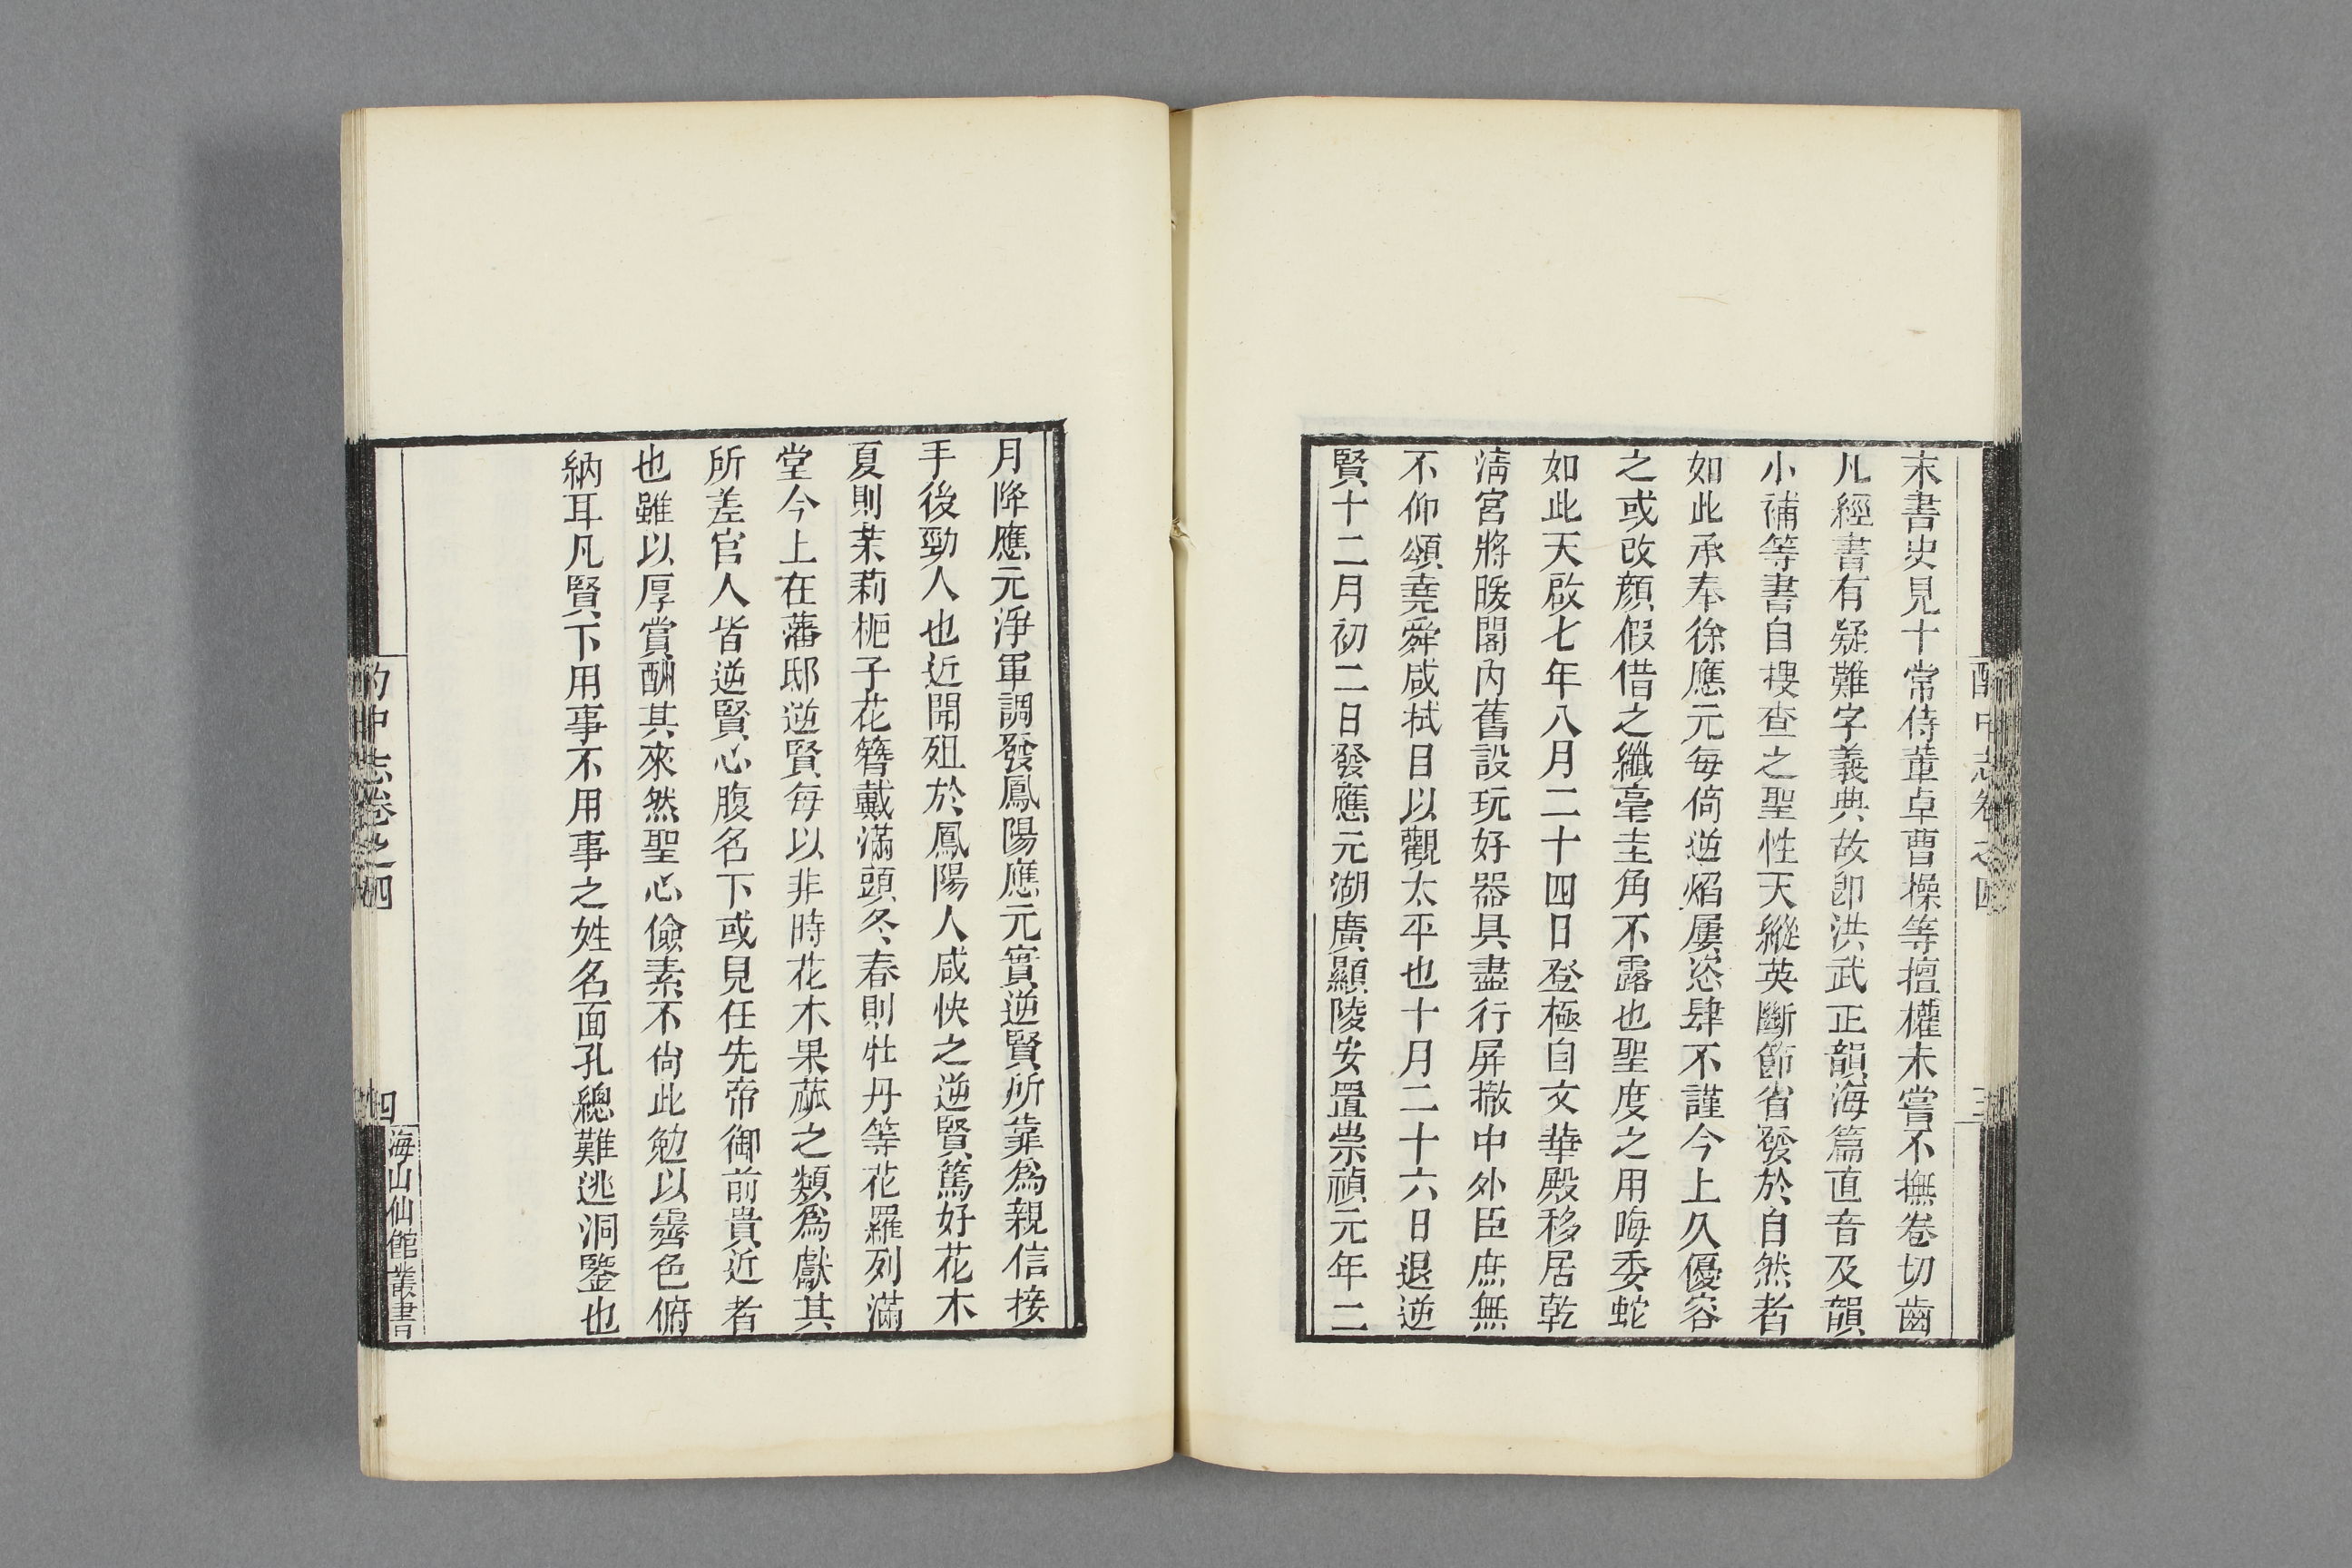 酌中志卷之四
三
末書史見十常侍董卓曹操等擅權未嘗不撫卷切齒
凡經書有疑難字義典故卽洪武正韻海篇直音及韻
小補等書自搜查之聖性天縱英斷節省發於自然者
如此承奉徐應元每倚逆焰屢恣肆不謹今上久優容
之或改顏假借之纖毫圭角不露也聖度之用晦委蛇
如此天啟七年八月二十四日登極自文華殿移居乾
淸宮將暖閣內舊設玩好器具盡行屏撤中外臣庶無
不仰頌堯舜咸拭目以觀太平也十月二十六日退逆
賢十二月初二日發應元湖廣顯陵安置崇禎元年二
月降應元淨軍調發鳳陽應元實逆賢所靠爲親信接
手後勁人也近聞殂於鳳陽人咸快之逆賢篤好花木
夏則茉莉梔子花簪戴滿頭冬春則牡丹等花羅列滿
堂今上在藩邸逆賢每以非時花木果蓏之類爲獻其
所差官人皆逆賢心腹名下或見任先帝御前貴近者
也雖以厚賞酬其來然聖心儉素不尙此勉以霽色俯
納耳凡賢下用事不用事之姓名面孔總難逃洞鑒也
酌中志卷之四
四
海山仙館叢書